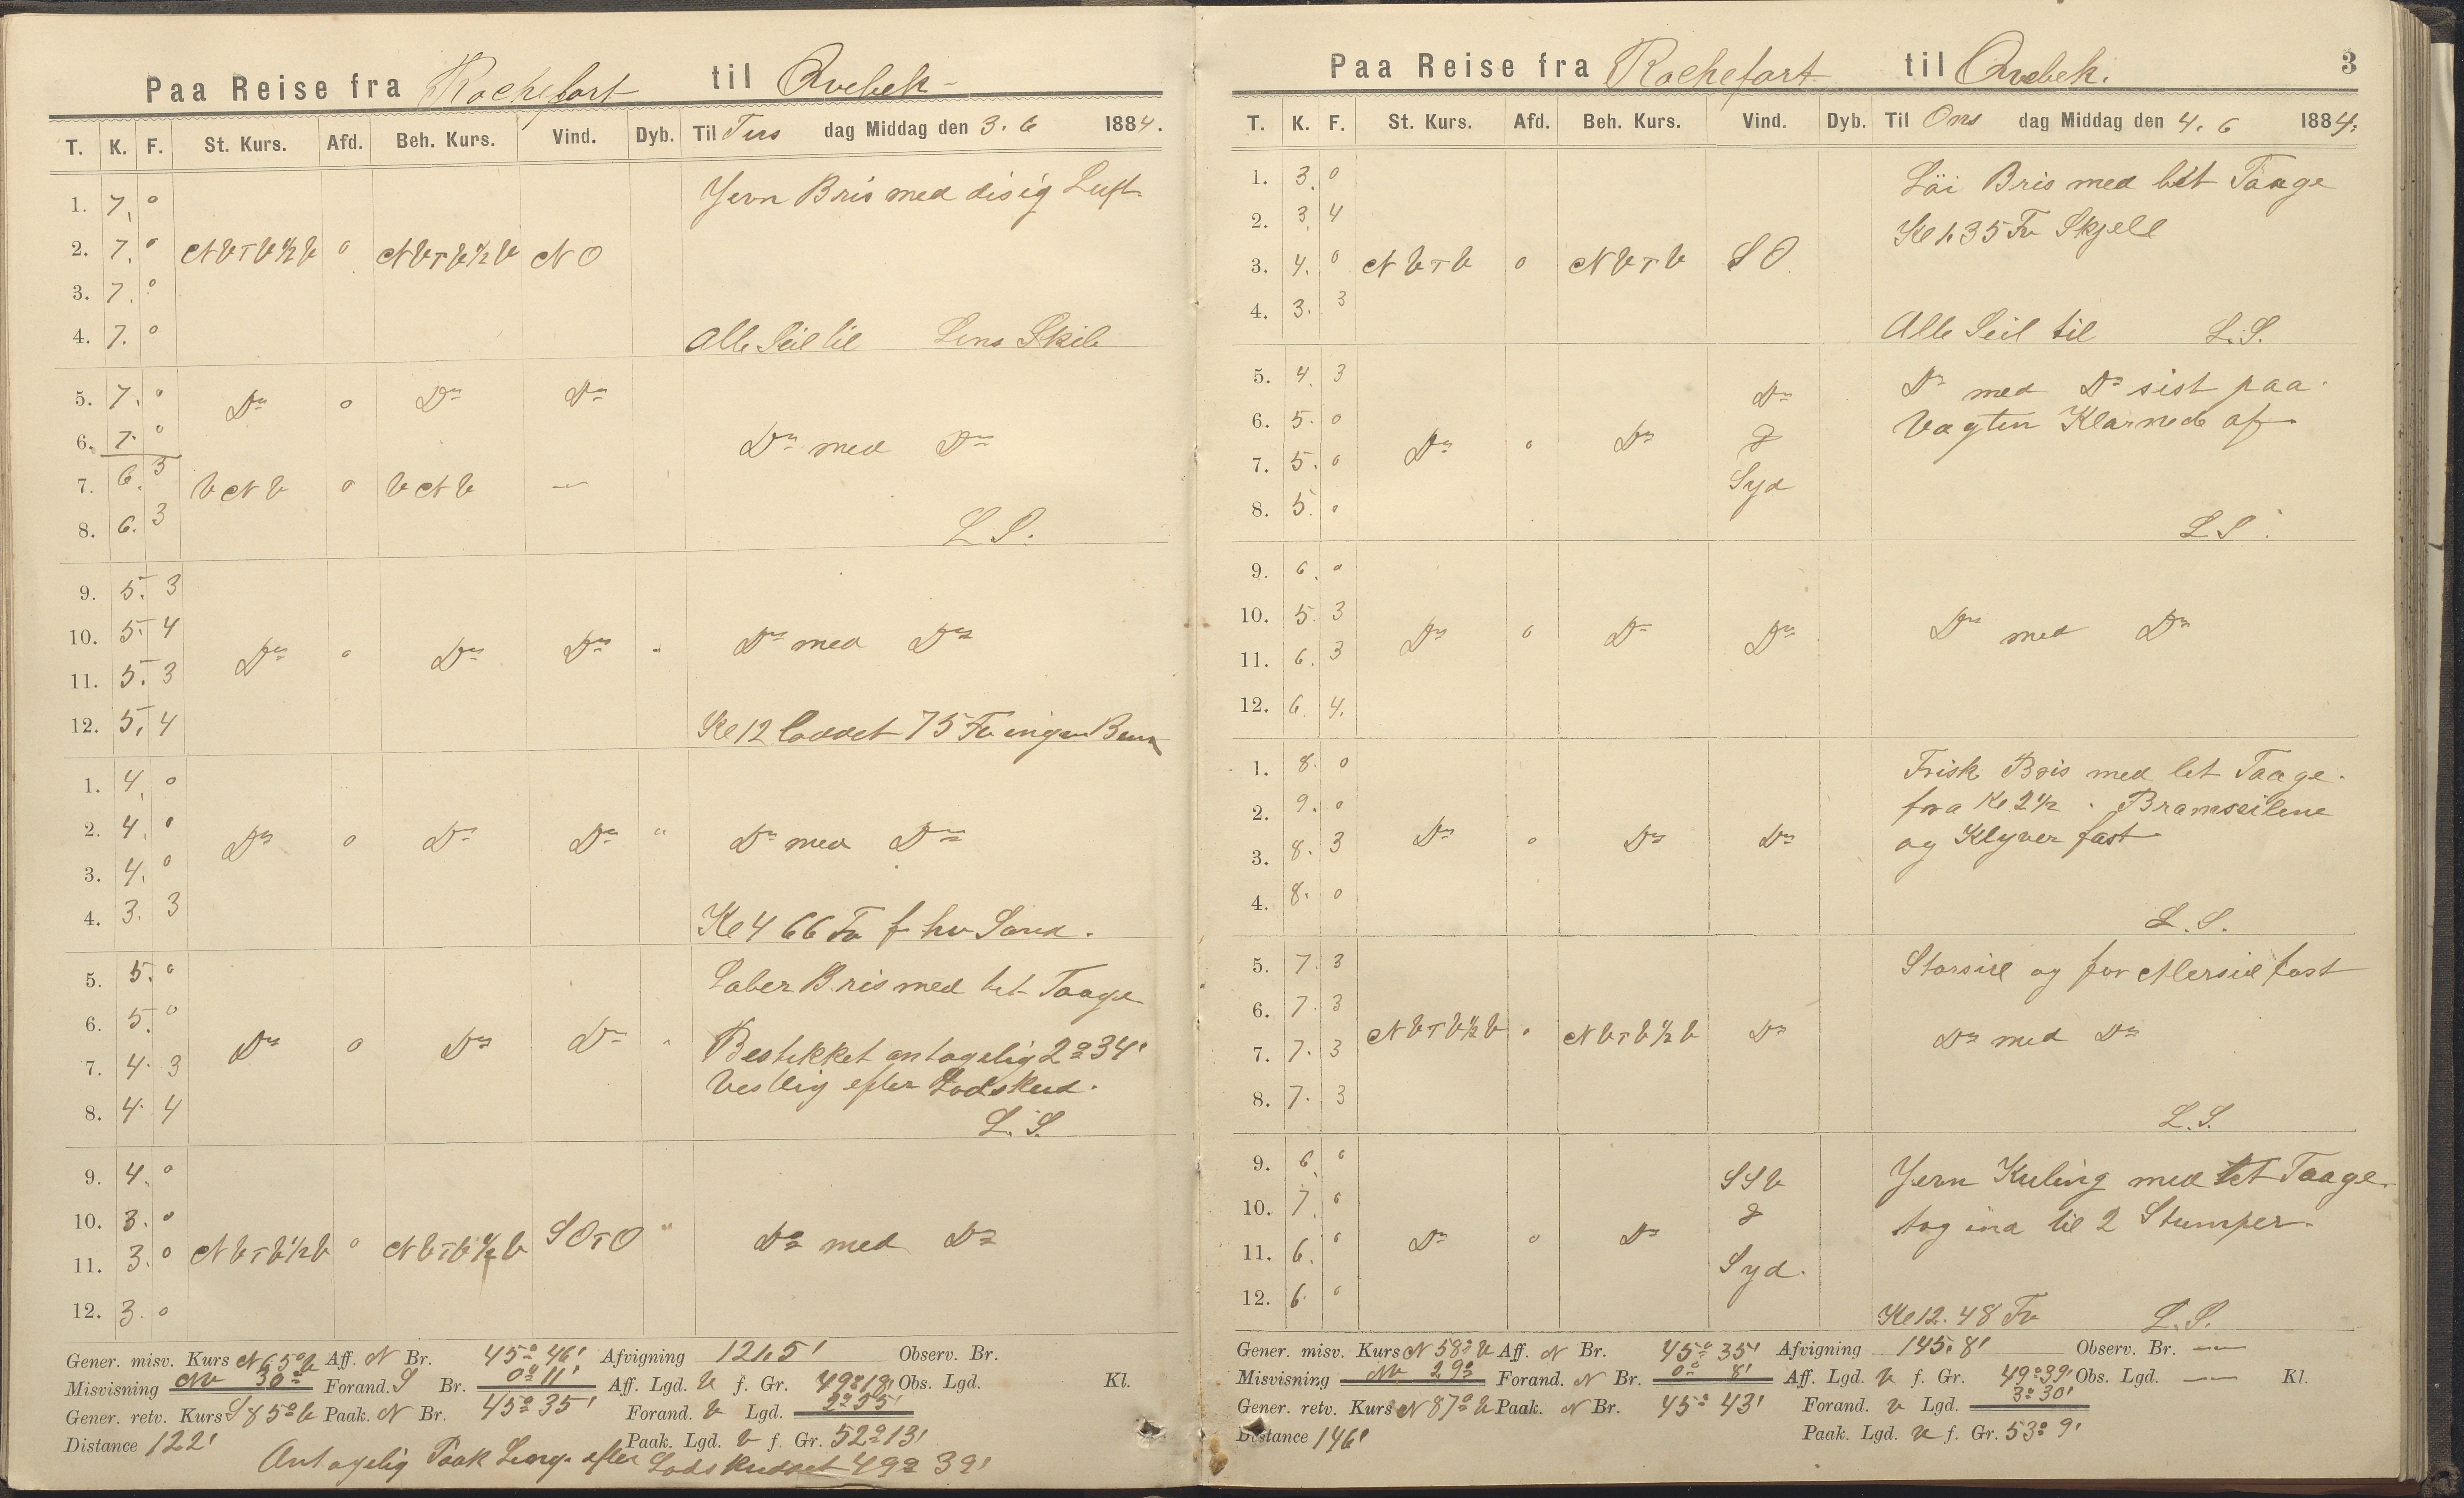 Paa Reise fra Rochefort til Qvebek
T. K. F. St. Kurs. Afd. Beh. Kurs. Vind. Dyb. Til Tirs dag Middag den 3. 6 1884.
Jevn Bris med disig Luft
1. 7. 0
2. 7. 0 NVTV½V 0 NVTV½V NO
3. 7. 0
4. 7. 0 Alle Seil til Lens Skib
5. 7. 0 Do 0 Do Do
6. 7. 0 Do med Do
7. 6. 3 VNV 0 VNV —
8. 6. 3 L S.
9. 5. 3
10. 5. 4 Do 0 Do Do " Do med Do
11. 5. 3
12. 5. 4 Kl 12 loddet 75 Fv ingen Bun
1. 4. 0
2. 4. 0 Do 0 Do Do " Do med Do
3. 4. 0
4. 3. 3 Kl 4 66 Fv f hv Sand.
5. 5. 0 Laber Bris med tet Taage
6. 5. 0 Do 0 Do Do " Bestikket antagelig 2° 34'
7. 4. 3 Vestlig efter Lodskud.
8. 4. 4 L. S.
9. 4. 0
10. 3. 0
11. 3. 0 NVTV½V 0 NVTV½V SOTO " Do med Do
12. 3. 0
Gener. misv. Kurs N65°V Aff. N Br. 45° 46' Afvigning 121,5' Observ. Br.
Misvisning NV 30° Forand. S Br. 0° 11' Aff. Lgd. V f. Gr. 49° 18' Obs. Lgd. Kl.
Gener. retv. Kurs S85°V Paak. N Br. 45° 35' Forand. V Lgd. 2° 55'
Distance 122' Paak. Lgd. V f. Gr. 52° 13'
Antagelig Paak Lengde efter Lodskuddet 49° 39'
Paa Reise fra Rochefort til Qvebek. 3
T. K. F. St. Kurs. Afd. Beh. Kurs. Vind. Dyb. Til Ons dag Middag den 4. 6 1884.
1. 3. 0 Löi Bris med tet Taage
2. 3. 4 Kl 1. 35 Fv Skjell
3. 4. 0 NVTV 0 NVTV SO
4. 3. 3 Alle Seil til L. S.
5. 4. 3 Do Do med Do sist paa
6. 5. 0 Do 0 Do & Vagten Klarnede af
7. 5. 0 Syd
8. 5. 0 L S.
9. 6. 0
10. 5. 3 Do 0 Do Do Do med Do
11. 6. 3
12. 6. 4.
1. 8. 0 Frisk Bris med tet Taage.
2. 9. 0 fra Kl 2½. Bramseilene
3. 8. 3 Do 0 Do Do og Klyver fast
4. 8. 0 L. S.
5. 7. 3 Storseil og for Merseil fast
6. 7. 3 NVTV½V 0 NVTV½V Do
7. 7. 3 Do med Do
8. 7. 3 L. S.
9. 6. 0 SSV Jevn Kuling med tet Taage.
10. 7. 0 & tog ind til 2 Stumper
11. 6. 0 Do 0 Do Syd.
12. 6. 0 Kl 12. 48 Fv L. S.
Gener. misv. Kurs N 58° V Aff. N Br. 45° 35' Afvigning 145,8' Observ. Br. —
Misvisning NV 29° Forand. N Br. 0° 8' Aff. Lgd. V f. Gr. 49° 39' Obs. Lgd. — Kl.
Gener. retv. Kurs N 87° V Paak. N Br. 45° 43' Forand. V Lgd. 3° 30'
Distance 146' Paak. Lgd. V f. Gr. 53° 9'